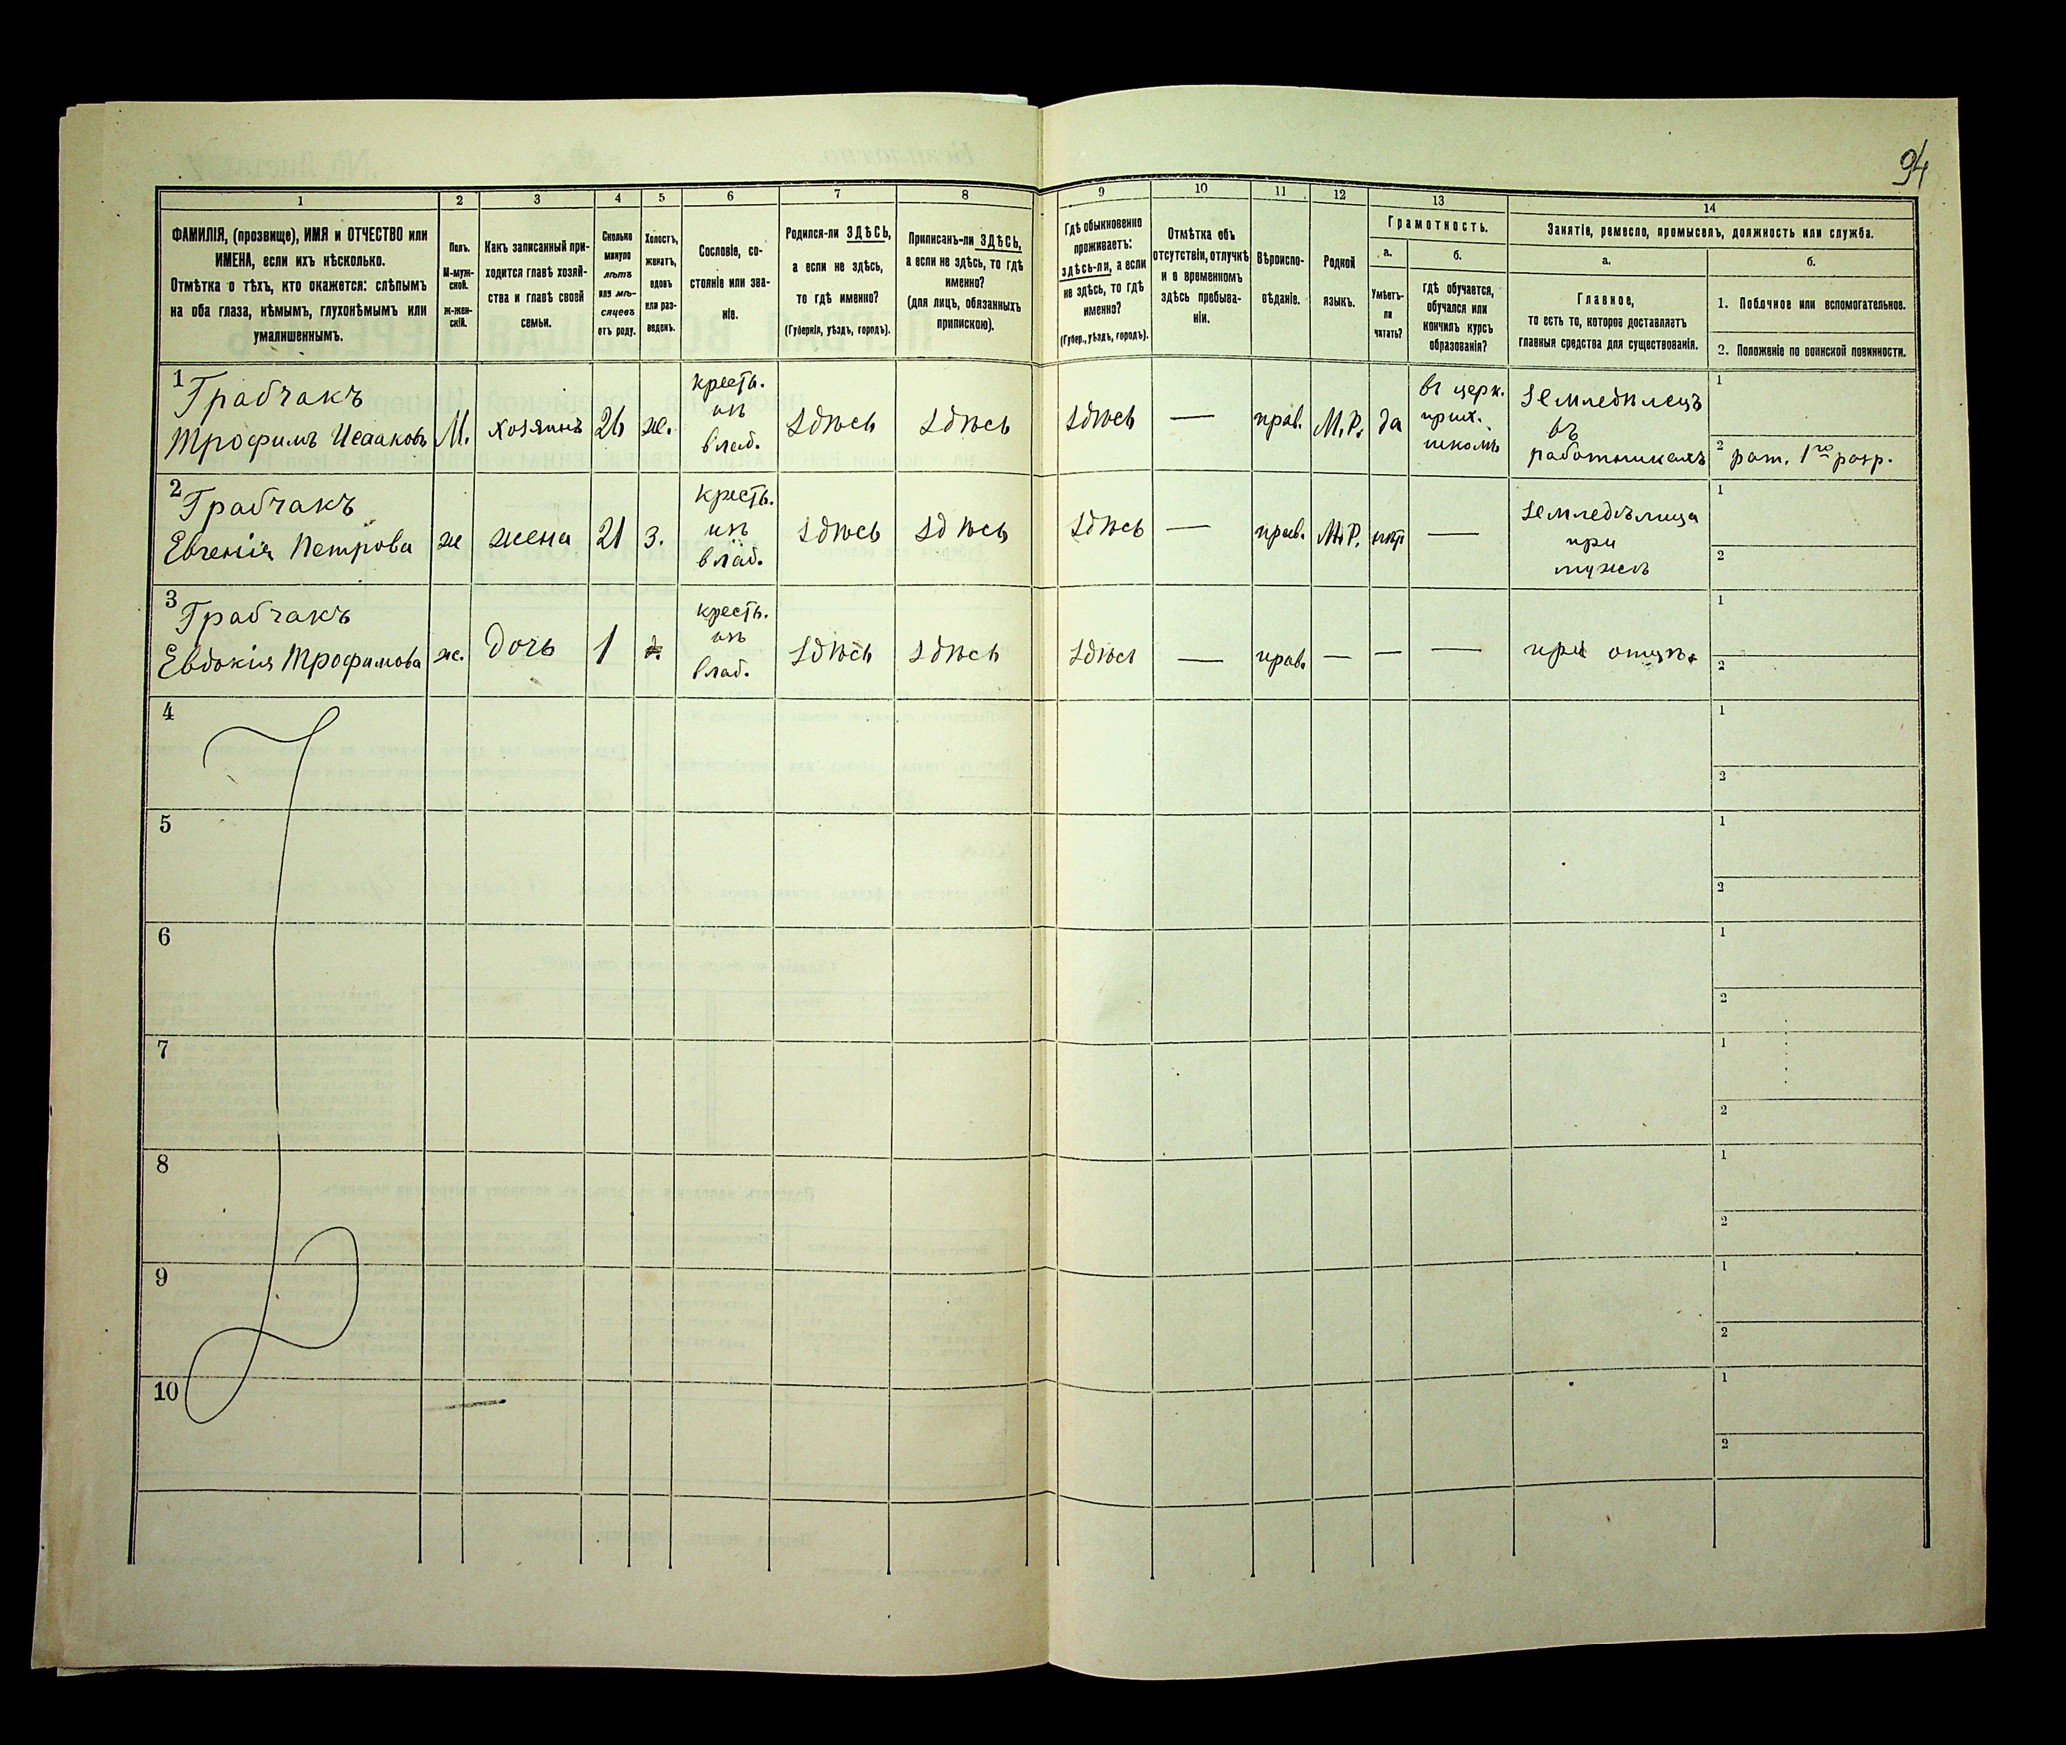 94
1
2
3
4
5
6
7
8
9
10
11
12
13
14
ФАМИЛІЯ, (прозвище), ИМЯ и ОТЧЕСТВО или
ИМЕНА, если ихъ нѣсколько.
Отмѣтка о тѣхъ, кто окажется: слѣпымъ
на оба глаза, нѣмымъ, глухонѣмымъ или
умалишеннымъ.
Полъ.
М-муж-
ской.
ж-жен-
скій.
Какъ записанный при-
ходится главѣ хозяй-
ства и главѣ своей
семьи.
Сколько
минуло
лѣтъ
или мѣ-
сяцевъ
отъ роду.
Холостъ,
женатъ,
вдовъ
или раз-
веденъ.
Сословіе, со-
стояніе или зва-
ніе.
Родился-ли ЗДѢСЬ,
а если не здѣсь,
то гдѣ именно?
(Губернія, уѣздъ, городъ).
Приписанъ-ли ЗДѢСЬ,
а если не здѣсь, то гдѣ
именно?
(для лицъ, обязанныхъ
припискою).
Гдѣ обыкновенно
проживаетъ:
здѣсь-ли, а если
не здѣсь, то гдѣ
именно?
(Губер., уѣздъ, городъ).
Отмѣтка объ
отсутствіи, отлучкѣ
и о временномъ
здѣсь пребыва-
ніи.
Вѣроиспо-
вѣданіе.
Родной
языкъ.
Грамотность.
а.
Умѣетъ-
ли
читать?
б.
гдѣ обучается,
обучался или
кончилъ курсъ
образованія?
Занятіе, ремесло, промыселъ, должность или служба.
а.
Главное,
то есть то, которое доставляетъ
главныя средства для существованія.
б.
1. Побочное или вспомогательное.
2. Положеніе по воинской повинности.
1
Грабчакъ
Трофимъ Исааковъ
М.
хозяинъ
26
ж.
кресть.
изъ
влад.
здѣсь
здѣсь
здѣсь
—
прав.
М.Р.
да
въ церк.
прих.
школѣ
земледѣлецъ
въ
работникахъ
1
2 рат. 1го разр.
2
Грабчакъ
Евгенія Петрова
ж
жена
21
з.
кресть.
изъ
влад.
здѣсь
здѣсь
здѣсь
—
прав.
М.Р.
нѣтъ
—
земледѣлица
при
мужѣ
1
2
3
Грабчакъ
Евдокія Трофимова
ж.
дочь
1
кресть.
изъ
влад.
здѣсь
здѣсь
здѣсь
—
прав.
—
—
—
при отцѣ
1
2
4
1
2
5
1
2
6
1
2
7
1
2
8
1
2
9
1
2
10
1
2